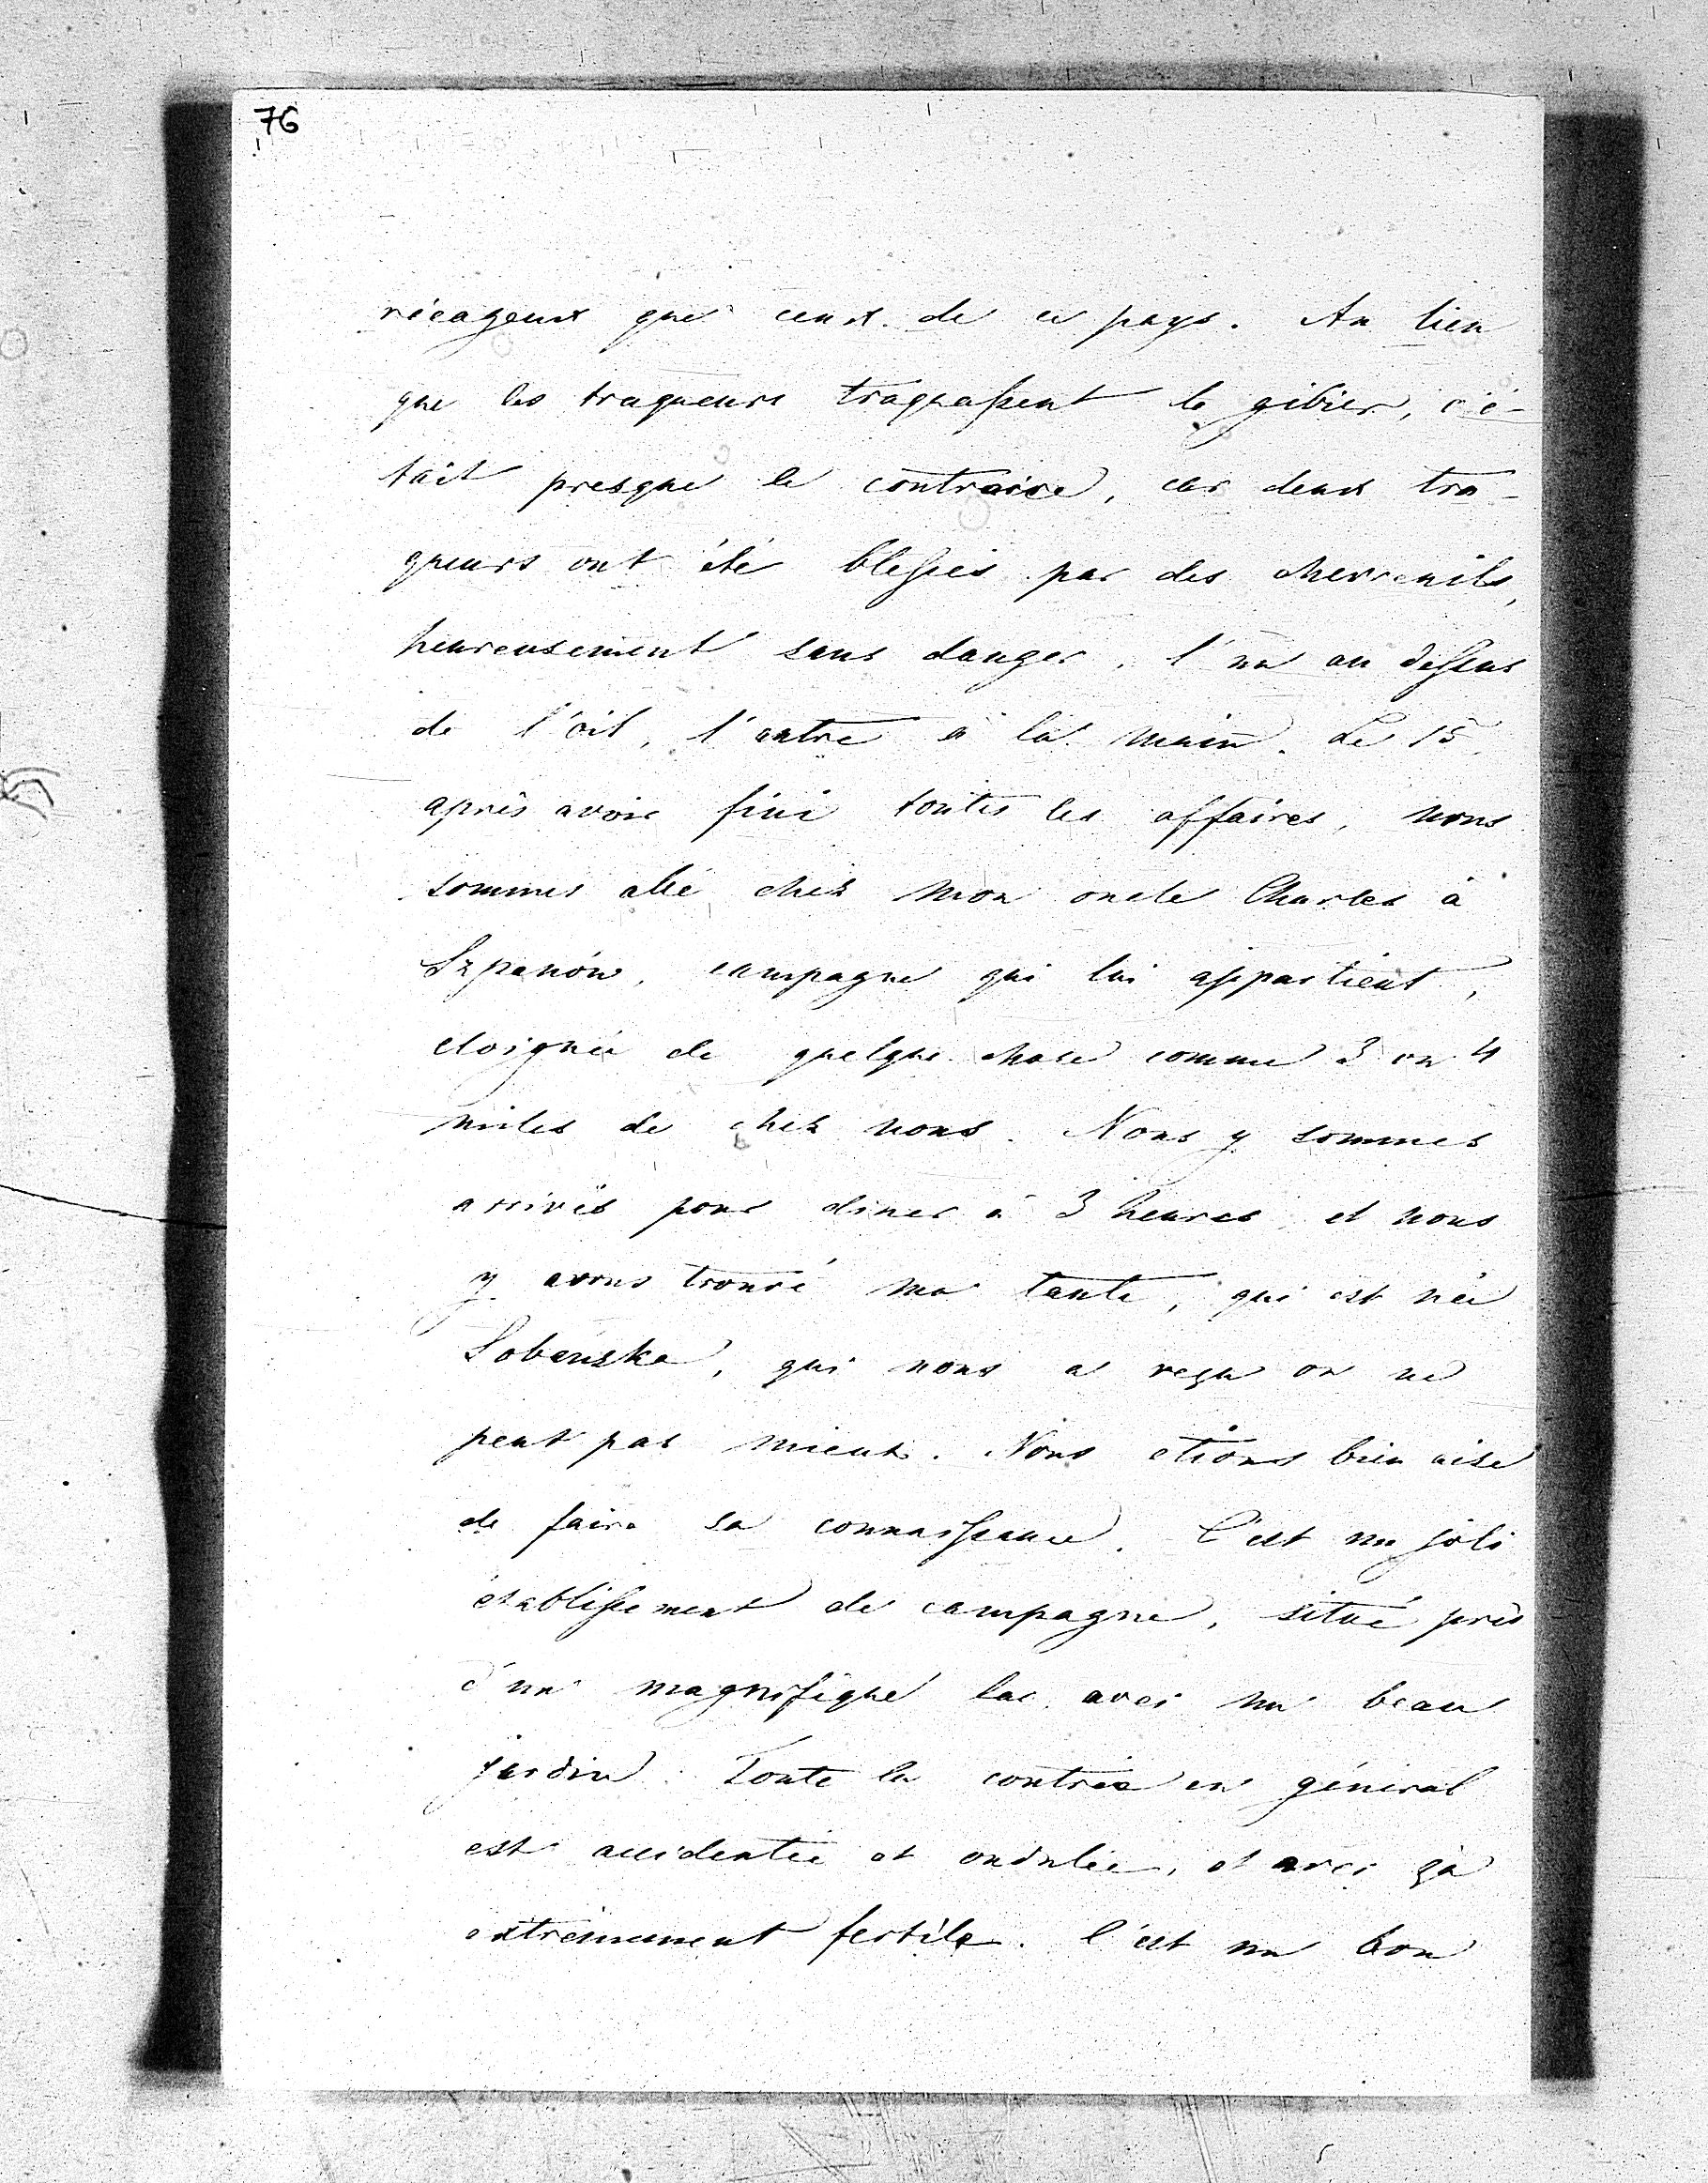 76
récageux que ceux de ce pays. Au lieu
que les traqueurs traquassent le gibier, c'é-
tait presque le contraire, car deux tra-
queurs ont été blessés par des chevreuils,
heureusement sans danger, l'un au dessus
de l'oil, l'autre à la main. Le 15,
après avoir fini toutes les affaires, nous
sommes allé chez mon oncle Charles à
Szpanów, campagne qui lui appartient,
eloignée de quelque chose comme 3 ou 4
miles de chez nous. Nous y sommes
arrivés pour diner à 3 heures et nous
y avons trouvé ma tante, qui est née
Sobańska, qui nous a reçu on ne
peut pas mieux. Nous etions bien aise
de faire sa connaissance. C'est un joli
établissement de campagne, situé près
d'un magnifique lac avec un beau
jardin. Toute la contrée en général
est accidentée et ondulée, et avec ça
extrêmement fertile. C'est un bon